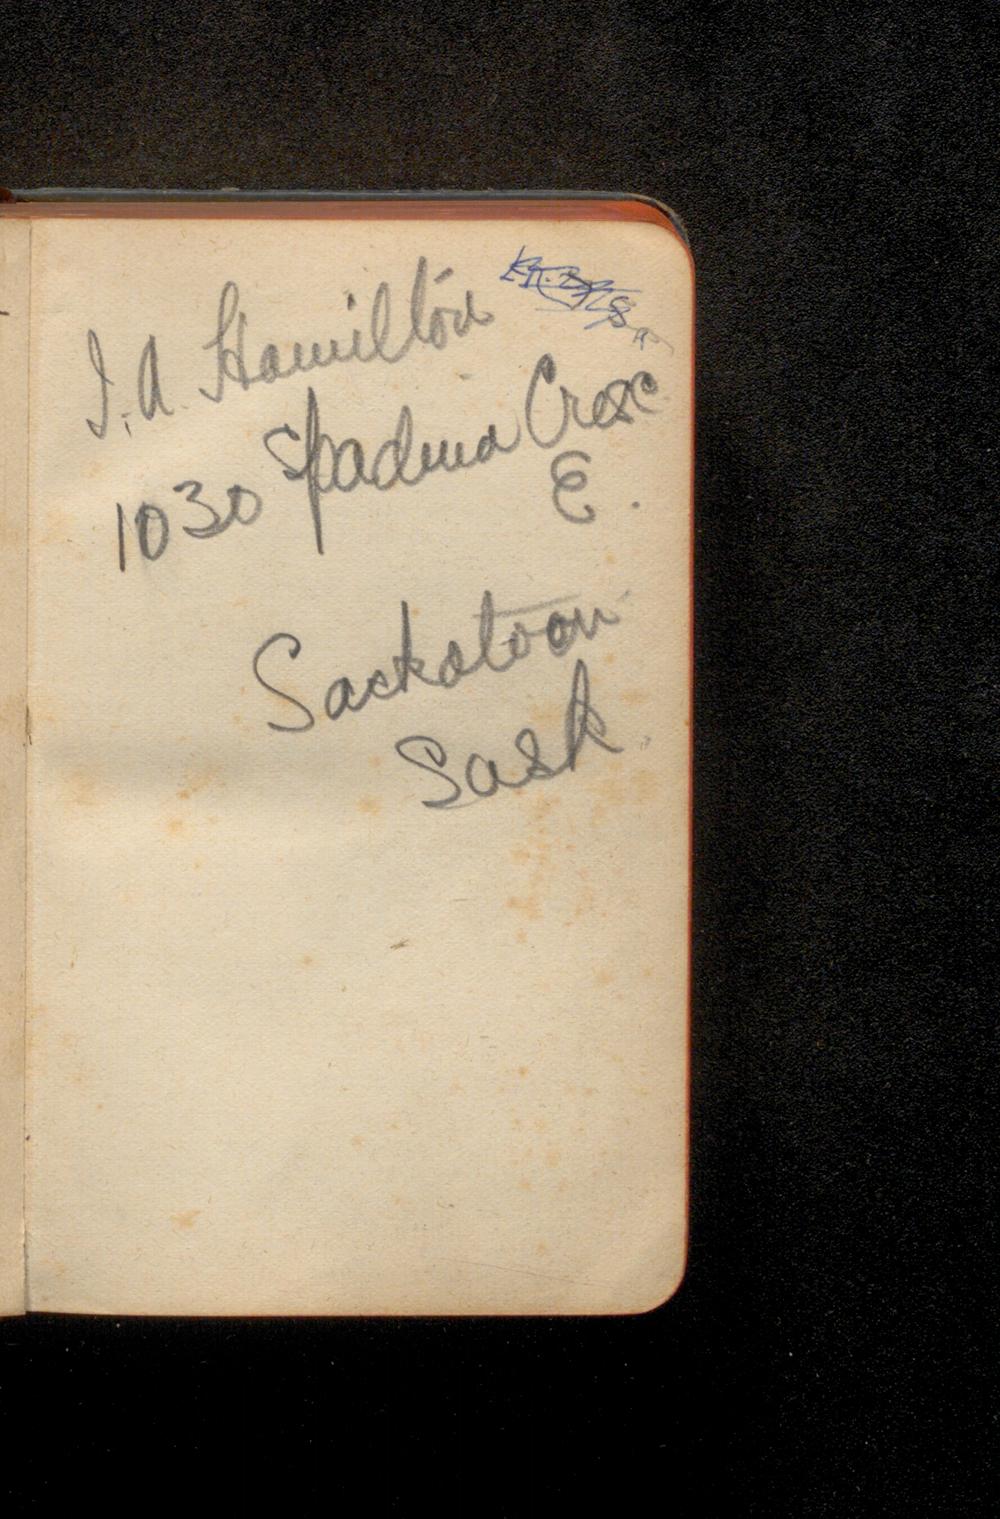 J. A. Hamilton
1030 Spadina Cresc
E.
Sackatoon
Sask.